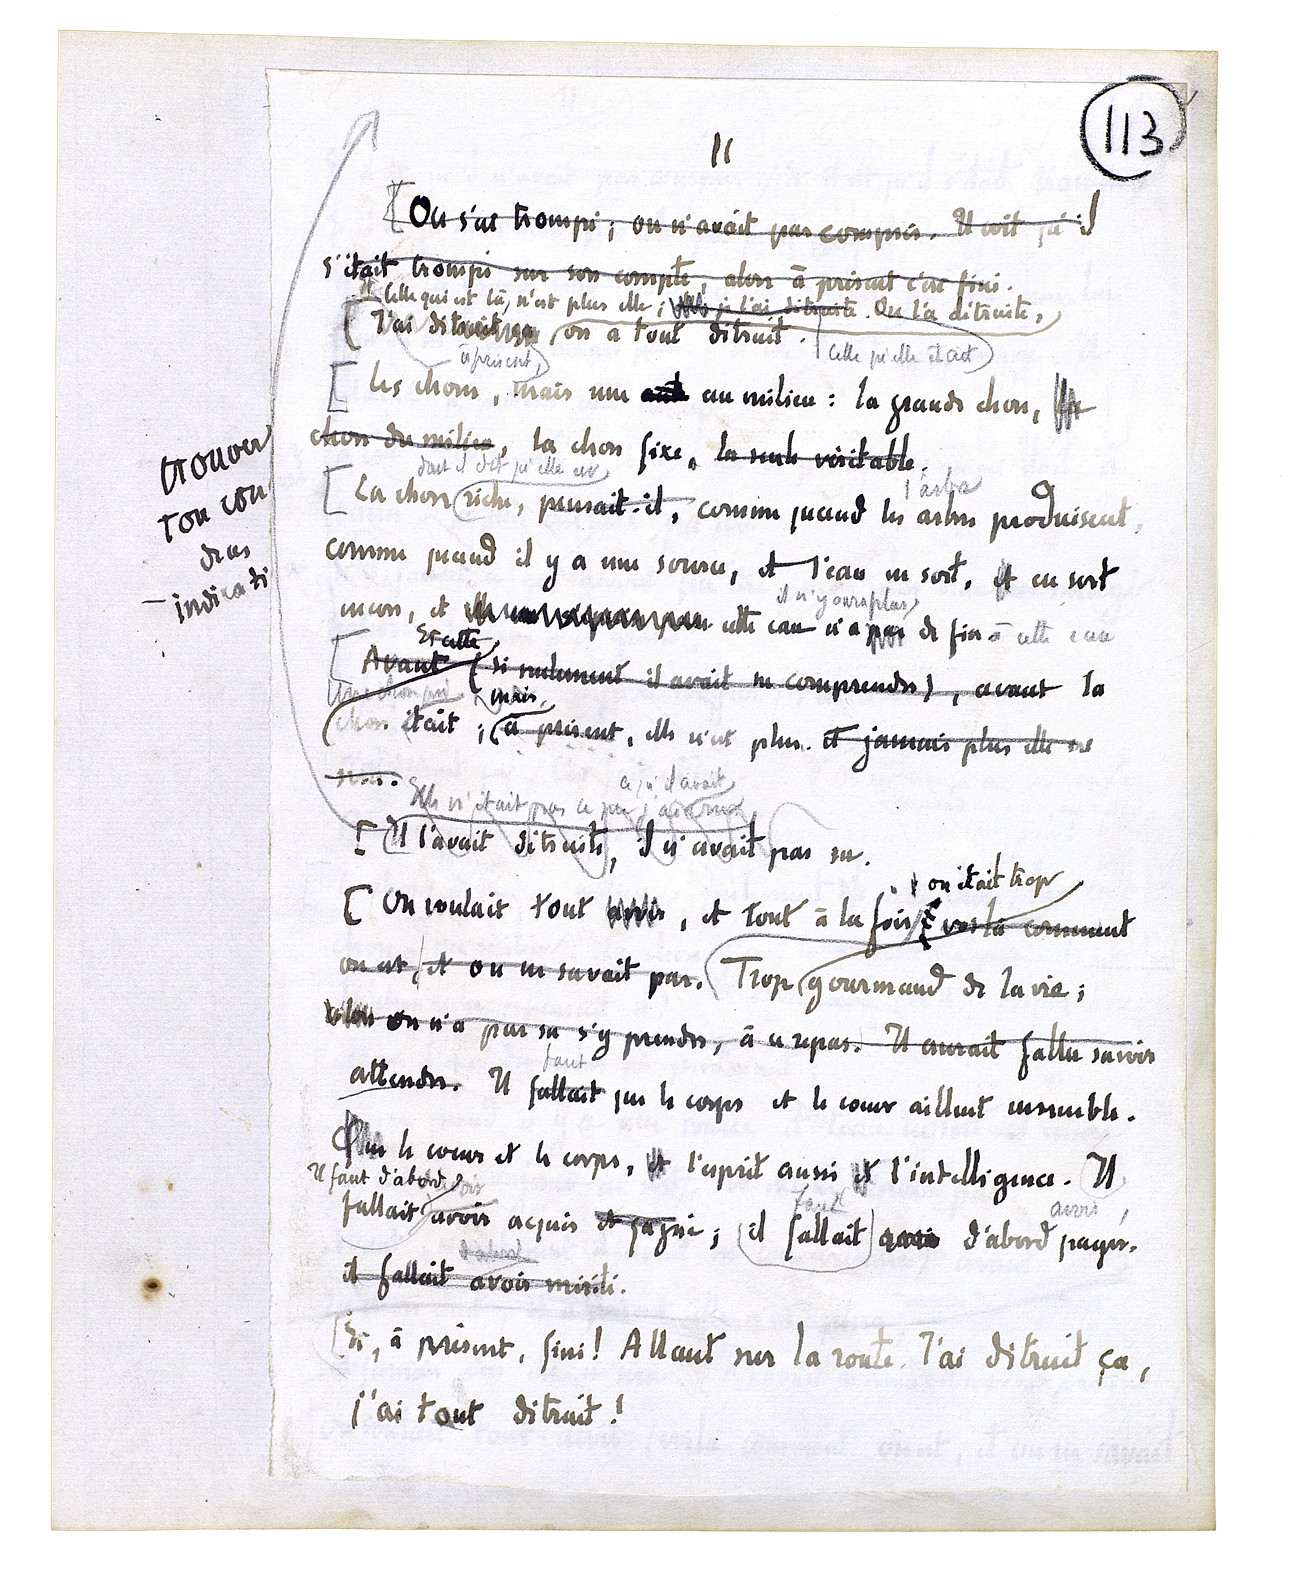 113
11
On s'est trompé ; on n'avait pas compris. Il voit qu'il
s'était trompé sur son compte, alors à présent c'est fini.
Celle qui est là, n'est plus elle ; je l'ai détruite. On l'a détruite,
J'ai détruit on a tout détruit.
à présent, celle qu'elle était
Les choses, mais une au milieu : la grande chose, la
chose du milieu, la chose fixe, la seule véritable.
dont il dit qu'elle est
l'arbre
La chose riche, pensait-il, comme quand les arbres produisent,
comme quand il y a une source, et l'eau en sort, et en sort
il n'y aura plus
encore, et cette eau n'a pas de fin à cette eau
Et cette
Avant (si seulement il avait su comprendre), avant la
mais,
chose était ; à présent, elle n'est plus. et jamais plus elle ne
sera.
ce qu'il avait
Elle n'était pas ce que j'ai
Il l'avait détruite, il n'avait pas su.
on était trop
On voulait tout avoir, et tout à la fois voilà comment
on est, et on ne savait pas. Trop gourmand de la vie ;
alors on n'a pas su s'y prendre, à ce repas. Il aurait fallu savoir
faut
attendre. Il fallait que le corps et le cœur aillent ensemble.
Que le cœur et le corps, et l'esprit aussi et l'intelligence. Il
Il faut d'abord
faut
avoir
fallait avoir acquis et gagné ; il fallait avoir d'abord payer.
d'abord
il fallait avoir mérité.
Et, à présent, fini ! Allant sur la route. J'ai détruit ça,
j'ai tout détruit !
trouver
ton cou
dras
indicati